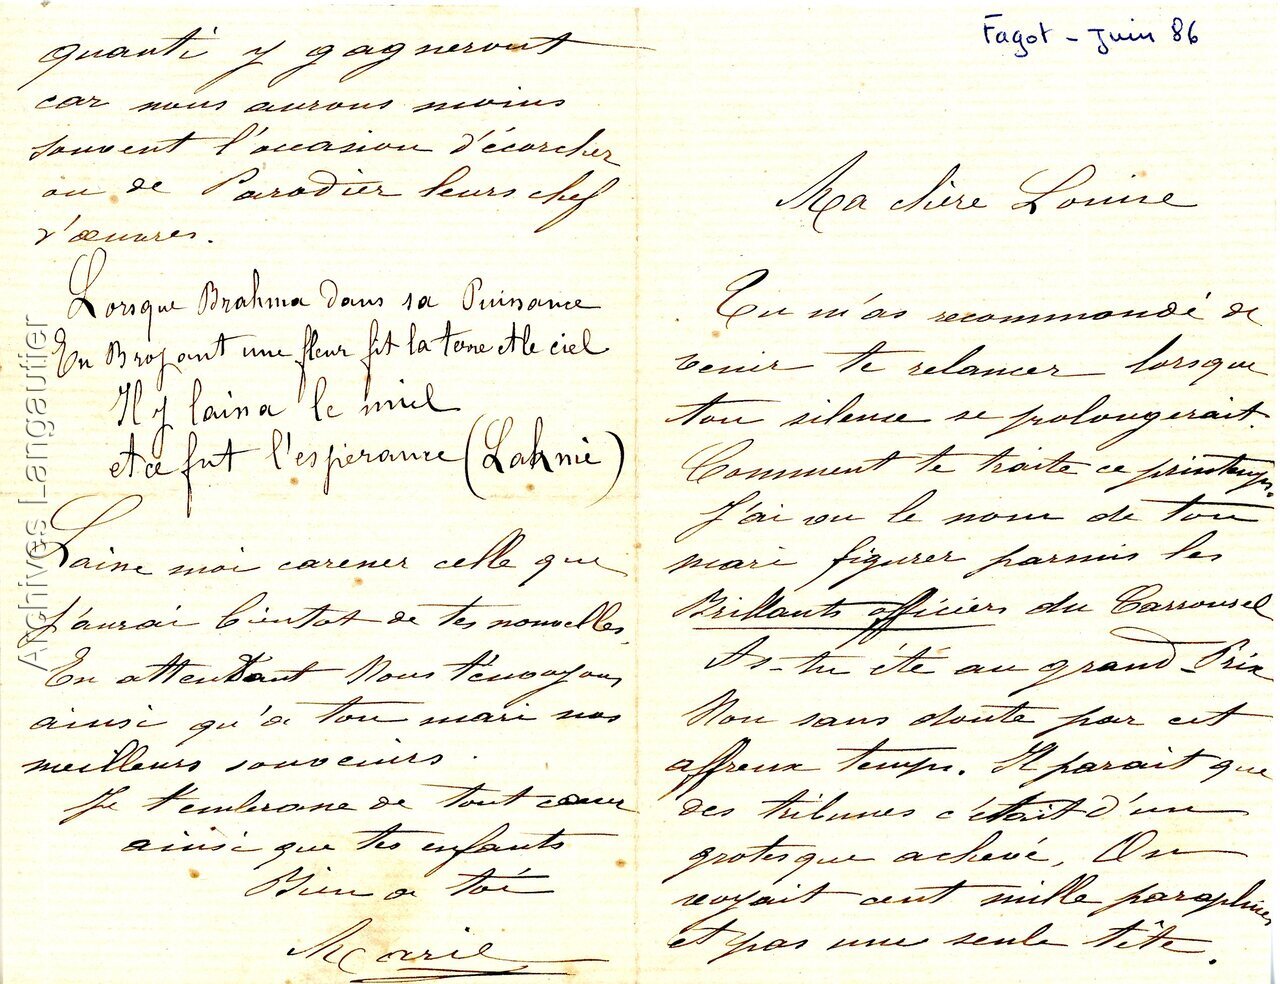 Fagot - Juin 86
Ma chère Louise
Tu m'as recommandé de
venir te relancer lorsque
ton silence se prolongerait.
Comment te traite ce printemps.
J'ai vu le nom de ton
mari figurer parmis les
Brillants officiers du Carrousel
As-tu été au grand Prix
Non sans doute par cet
affreux temps. Il parait que
des tribunes c'était d'un
grotesque achevé. On
voyait cent mille parapluies
et pas une seule tête.
quanti y gagneront
car nous aurons moins
souvent l'occasion d'écorcher
ou de Parodier leurs chef
d'œuvres.
Lorsque Brahma dans sa Puissance
En Broyant une fleur fit la terre et le ciel
Il y laissa le miel
et ce fut l'espérance (Lakmé)
Laisse moi caresser celle que
j'aurai bientot de tes nouvelles.
En attendant Nous t'envoyons
ainsi qu'a ton mari nos
meilleurs souvenirs.
Je t'embrasse de tout cœur
ainsi que tes enfants
Bien a toi
Marie
Archives Langautier